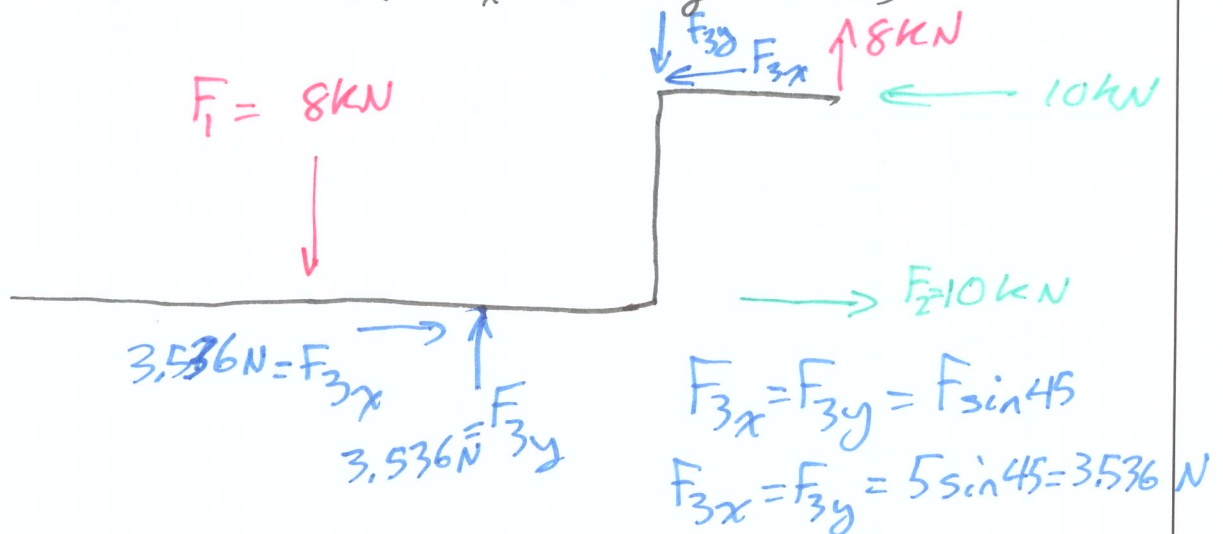 F3y
F3x
8KN
10KN
F1 = 8KN
F2=10KN
3.536N=F3x
3.536N=F3y
F3x=F3y=Fsin45
F3x=F3y=5sin45=3.536N